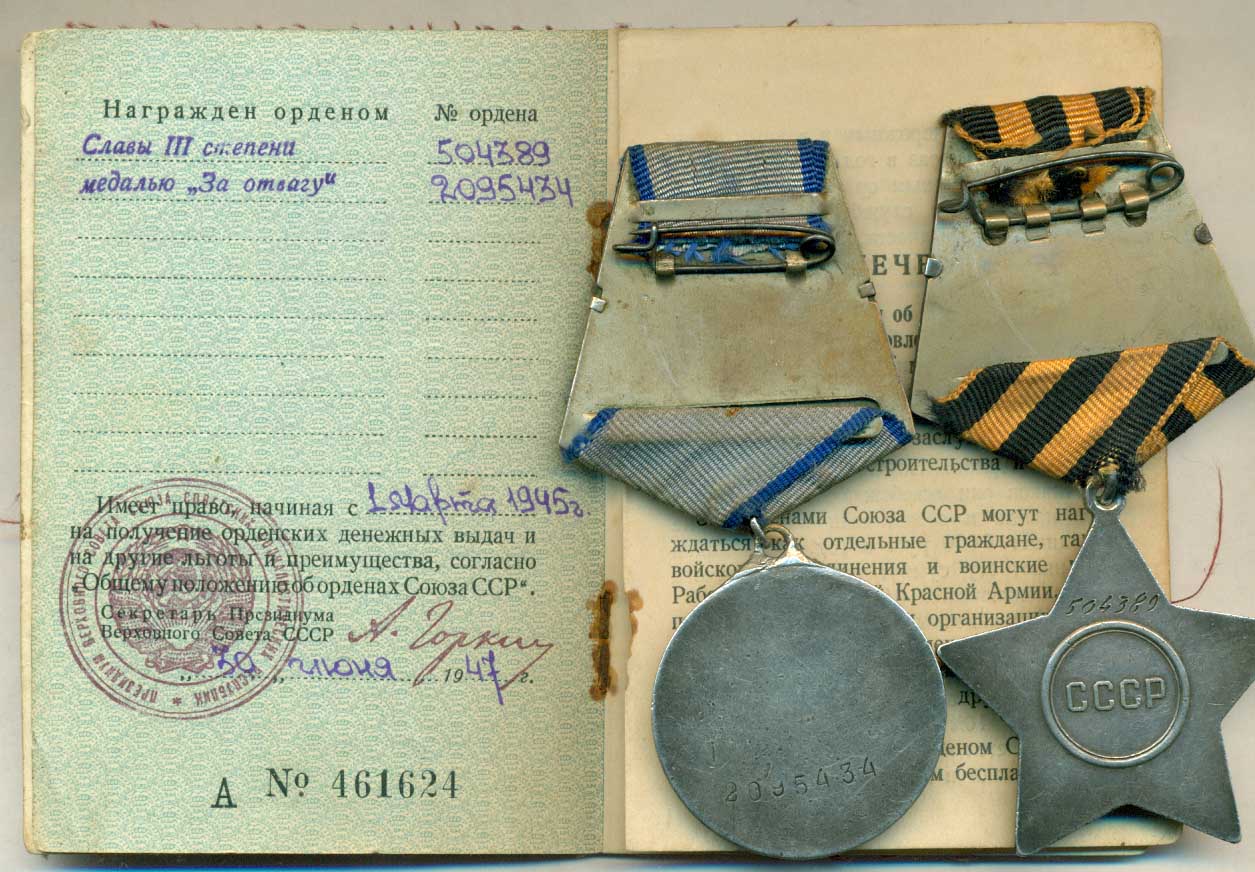 Награжден орденом № ордена
Славы III степени 504389
медалью „За отвагу“ 2095434
Имеет право, начиная с 1 марта 1945г.
на получение орденских денежных выдач и
на другие льготы и преимущества, согласно
„Общему положению об орденах Союза ССР“.
Секретарь Президиума
Верховного Совета СССР А. Горкин
„30“ июня 1947 г.
А № 461624
ЕЧЕ
об
заслу
строительства и
нами Союза ССР могут наг
ждаться как отдельные граждане, так
войско инения и воинские
Рабо Красной Армии,
организаци
др
деном С
м беспла
2095434
504389
СССР